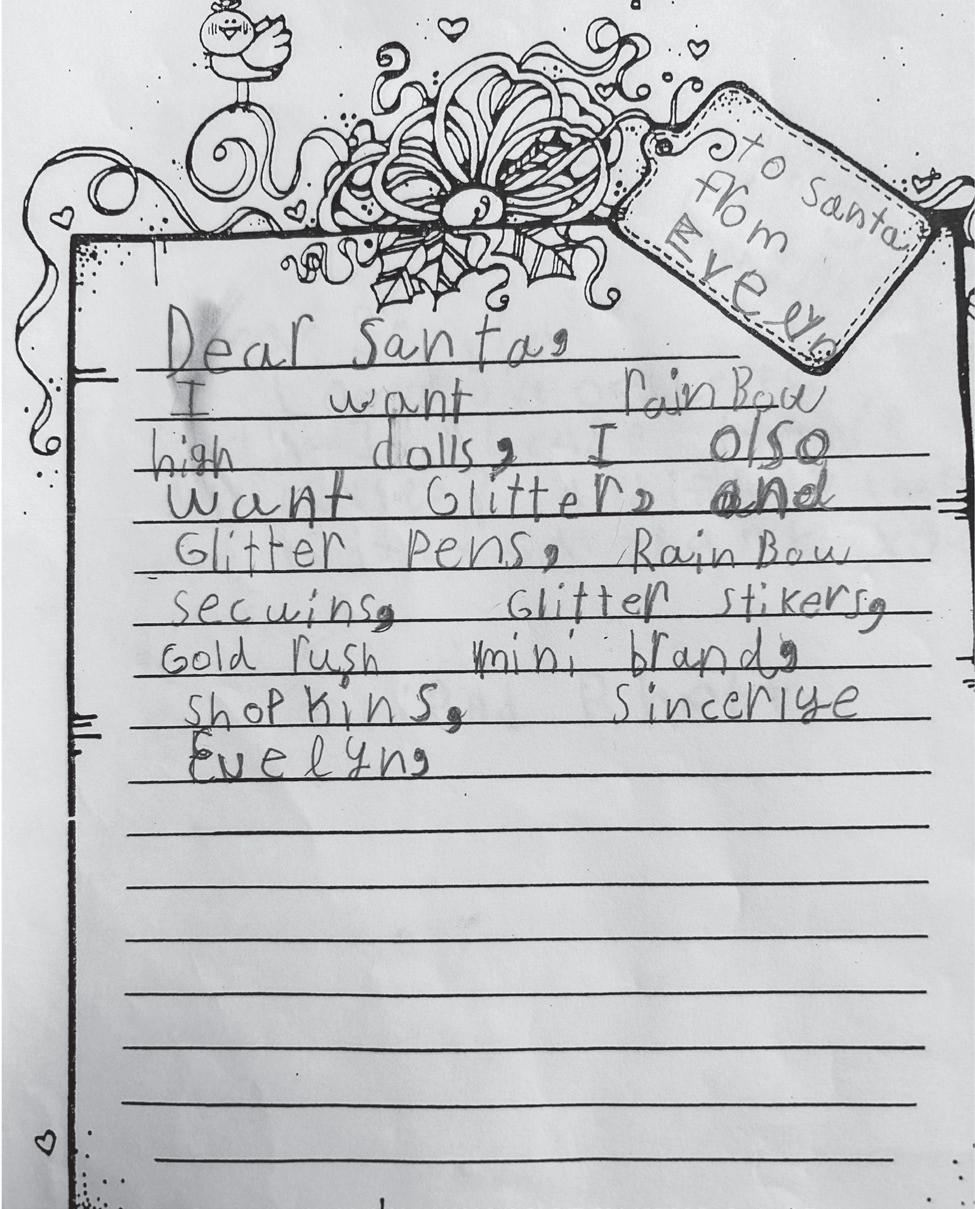 to santa
from
Evelyn
Dear Santa,
I want rainBow
high dolls, I olso
want Glitter, and
Glitter pens, RainBow
secwins, Glitter stikers,
Gold rush mini brand,
shopkins, sincerlye
Evelyn,